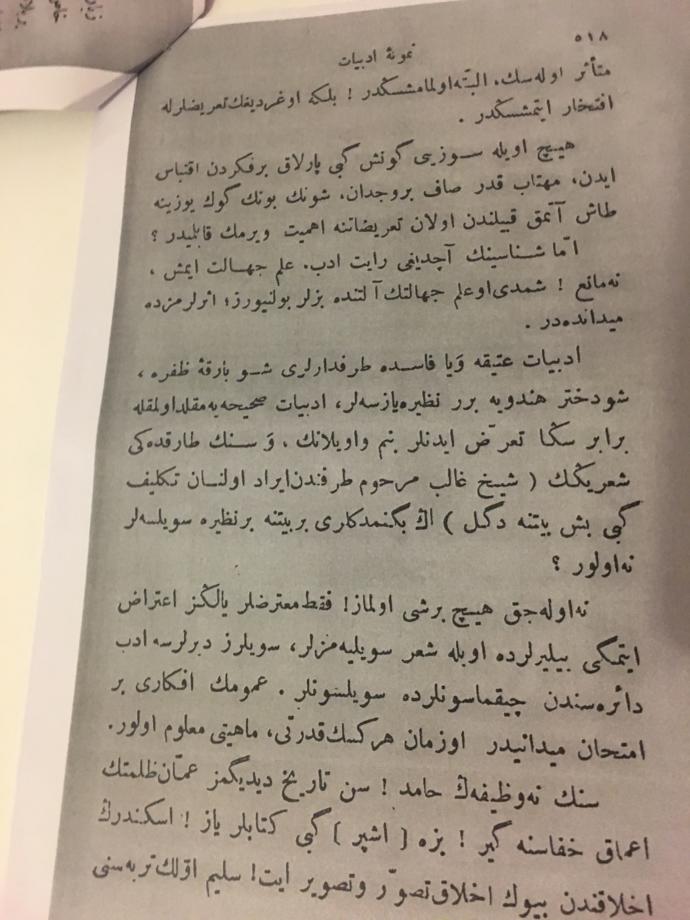 ٥١٨
نمونۀ ادبیات
متأثر اوله‌سك، البتّه اولمامشسڭدر ! بلكه اوغردیغك تعریضلرله
افتخار ایتمشسڭدر .
هیچ اویله سوزینی گونش گبی پارلاق برفكردن اقتباس
ایدن، مهتاب قدر صاف بروجدان، شونك بونك گوك یوزینه
طاش آتمق قبیلندن اولان تعریضاتنه اهمیت ویرمك قابلیدر ؟
امّا شناسینك آچدیغی رایت ادب، علم جهالت ایمش ،
نه‌مانع ! شمدی او علم جهالتك آلتنده بزلر بولنیورز؛ اثرلرمزده
میدانده‌در .
ادبیات عتیقه وَیا فاسده طرفدارلری شو بارقۀ ظفره ،
شودختر هندویه برر نظیره یازسه‌لر، ادبیات صحیحه‌یه مقلد اولمقله
برابر سڭا تعرّض ایدنلر بنم واویلانك ، وَ سنك طارقده‌كی
شعریڭك ( شیخ غالب مرحوم طرفندن ایراد اولنان تكلیف
گبی بش بیتنه دگل ) اڭ بگنمدكلری بربیتنه برنظیره سویلسه‌لر
نه‌اولور ؟
نه‌اوله‌جق هیچ برشی اولماز! فقط معترضلر یالڭز اعتراض
ایتمگی بیلیرلرده اویله شعر سویلیه‌مزلر، سویلرز دیرلرسه ادب
دائره‌سندن چیقماسونلرده سویلسونلر . عمومك افكاری بر
امتحان میدانیدر اوزمان هركسك قدرتی، ماهیتی معلوم اولور.
سنك نه‌وظیفه‌ڭ حامد ! سن تاریخ دیدیگمز عمّان ظلمتك
اعماق خفاسنه گیر ! بزه ( اشبر ) گبی كتابلر یاز ! اسكندرڭ
اخلاقندن بیوك اخلاق تصوّر وتصویر ایت! سلیم اوّلك تربه‌سنی